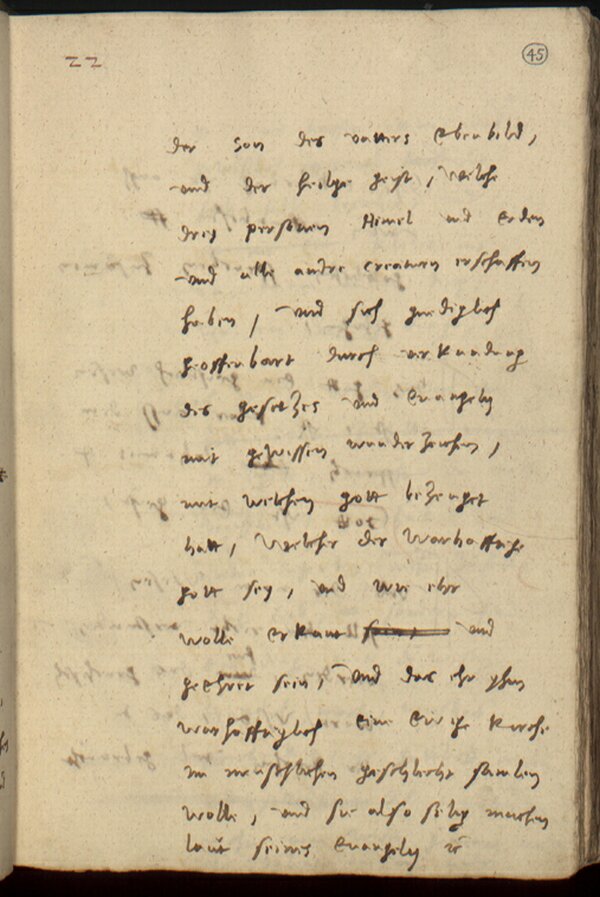 22
45
der son des vatters Ebenbild,
und der heilge geist, welche
drey personen Himel und Erden
und alle andre creaturn erschaffen
haben, und sich gnediglich
geoffenbart durch verkundung
des gesetzes und Evangely
mit gewissen wunderzeichen,
mit welchen gott bezeuget
hatt, welcher der warhafftige
gott sey, und wie ehr
wolle erkant sein, und
geehret sein, und das ehr yhm
warhafftiglich eine Ewige Kirche
im menschlichen geschlecht samlen
wolle, und sie also selig machen
laut seines Evangely